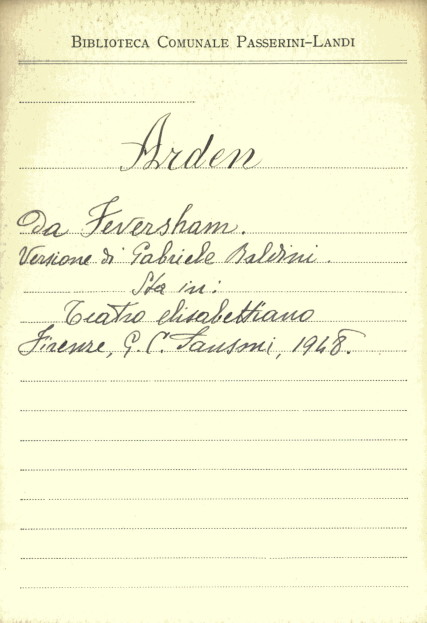 Biblioteca Comunale Passerini-Landi
Arden
Da Feversham.
Versione di Gabriele Baldini.
Sta in:
Teatro elisabettiano
Firenze, G. C. Sansoni, 1948.